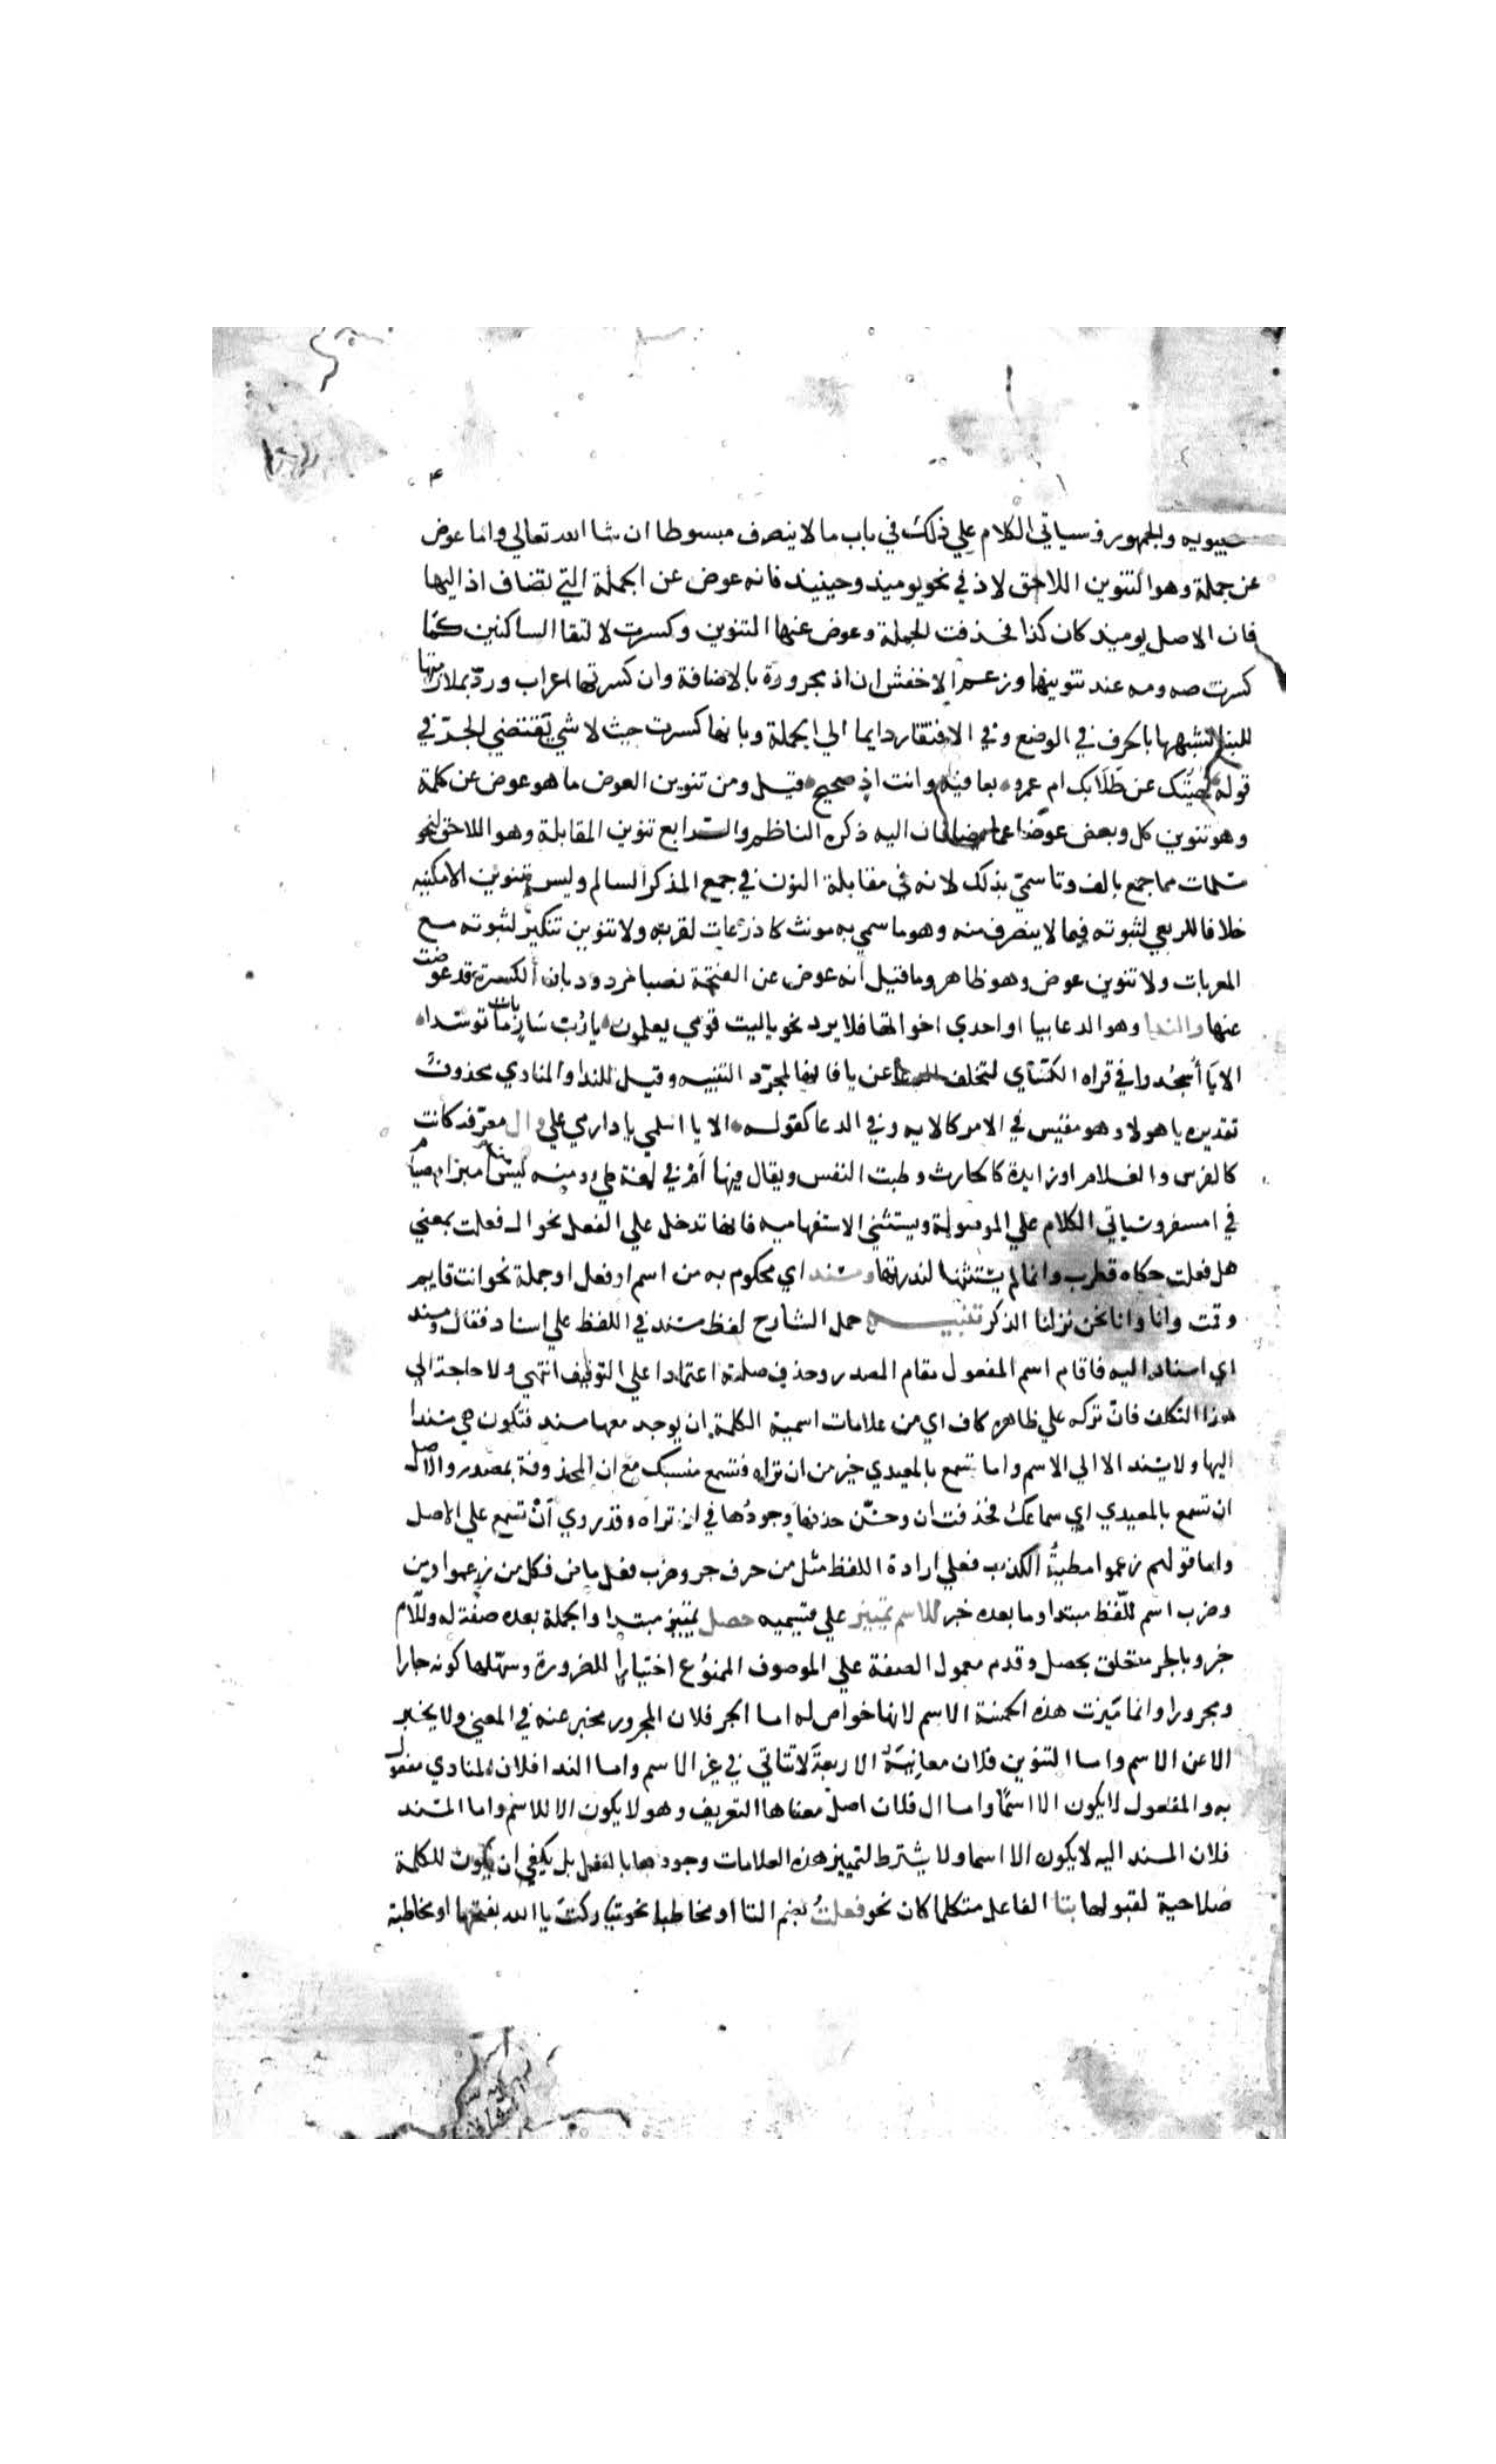 سيبويه والجمهور وسياتي الكلام علي ذلك في باب ما لا ينصرف مبسوطا ان شا الله تعالي واما عوض
عن جملة وهو التنوين اللاحق لاذ في نحو يوميذ وحينيذ فانه عوض عن الجملة التي تضاف اذ اليها
فان الاصل يوميذ كان كذا فحذفت الجملة وعوض عنها التنوين وكسرت لالتقا الساكنين كما
كسرت صه ومه عند تنوينها وزعم الاخفش ان اذ مجرورة بالاضافة وان كسرتها اعراب وردّ بملازمتها
للبنا لشبهها بالحرف في الوضع وفي الافتقار دايما الي الجملة وبانها كسرت حيث لا شي يقتضي الجرّ في
قوله نهيتك عن طلابك ام عمرو بعافية وانت اذ صحيح قيل ومن تنوين العوض ما هو عوض عن كلمة
وهو تنوين كل وبعض عوضا عما يضافان اليه ذكره الناظم والرابع تنوين المقابلة وهو اللاحق لنحو
مسلمات مما جمع بالف وتا سمي بذلك لانه في مقابلة النون في جمع المذكر السالم وليس بتنوين الامكنية
خلافا للربعي لثبوته فيما لا ينصرف منه وهو ما سمي به مونث كاذرعات لقرية ولا تنوين تنكير لثبوته مع
المعربات ولا تنوين عوض وهو ظاهر وما قيل انه عوض عن الفتحة نصبا مردود بان الكسرة قد عوضت
عنها والندا وهو الدعا بيا او احدي اخواتها فلا يرد نحو ياليت قومي يعلمون يا رُبّ سارٍ بات ما توسّدا
الا يا اسجدوا في قراة الكسّاي لتخلف الدعا عن يا فانها لمجرّد التنبيه وقيل للندا والمنادي محذوف
تقديره يا هولا وهو مقيس في الامر كالاية وفي الدعا كقوله الا يا اسلمي يا دار مي علي و ال معرّفة كانت
كالفرس والغلام او زايدة كالحارث وطبت النفس ويقال فيها اَمْ في لغة طي ومنه ليس من امبر امصيام
في امسفر وسياتي الكلام علي الموصولة ويستثني الاستفهامية فانها تدخل علي الفعل نحو ال فعلت بمعني
هل فعلت حكاه قطرب وانما لم يستثنها لندرتها ومسند اي محكوم به من اسم او فعل او جملة نحو انت قايم
وقمت وانا وانا نحن نزلنا الذكر تنبيه حمل الشارح لفظ مسند في اللفظ علي اسناد فقال ومسند
اي اسناد اليه فاقام اسم المفعول مقام المصدر وحذف صلته اعتمادا علي التوقيف انتهي ولا حاجة الي
هذا التكلف فانّ تركه علي ظاهره كاف اي من علامات اسمية الكلمة ان يوجد معها مسند فتكون هي مسندا
اليها ولا يسند الا الي الاسم واما تسمع بالمعيدي خير من ان تراه فتسمع منسبك مع ان المحذوفة بمصدر والاصل
ان تسمع بالمعيدي اي سماعك فحذفت ان وحسّن حذفها وجودُها في ان تراه وقد روي اَنْ تسمع علي الاصل
واما قولهم زعموا مطيةُ الكذب فعلي ارادة اللفظ مثل من حرف جر وضرب فعل ماض فكل من زعموا ومن
وضرب اسم للّفظ مبتدا وما بعده خبر للاسم تمييز علي قسيميه حصل تمييز مبتدا والجملة بعده صفة له وللّام
خبر وبالجر متعلق بحصل وقدم معمول الصفة علي الموصوف الممنوع اختيارا للضرورة وسهّلها كونه جارا
ومجرورا وانما ميّزت هذه الخمسة الاسم لانها خواص له اما الجر فلان المجرور مخبر عنه في المعني ولا يخبر
الا عن الاسم واما التنوين فلان معانيَه الاربعةَ لا تتاتي في غير الاسم واما الندا فلان المنادي مفعول
به والمفعول لا يكون الا اسمًا واما ال فلان اصلَ معناها التعريف وهو لا يكون الا للاسم واما المسند
فلان المسند اليه لا يكون الا اسما ولا يشترط لتمييز هذه العلامات وجودها بالفعل بل يكفي ان يكون للكلمة
صلاحية لقبولها بتا الفاعل متكلما كان نحو فعلتُ بضم التا او مخاطبا نحو تباركتَ يا الله بفتحها او مخاطبة